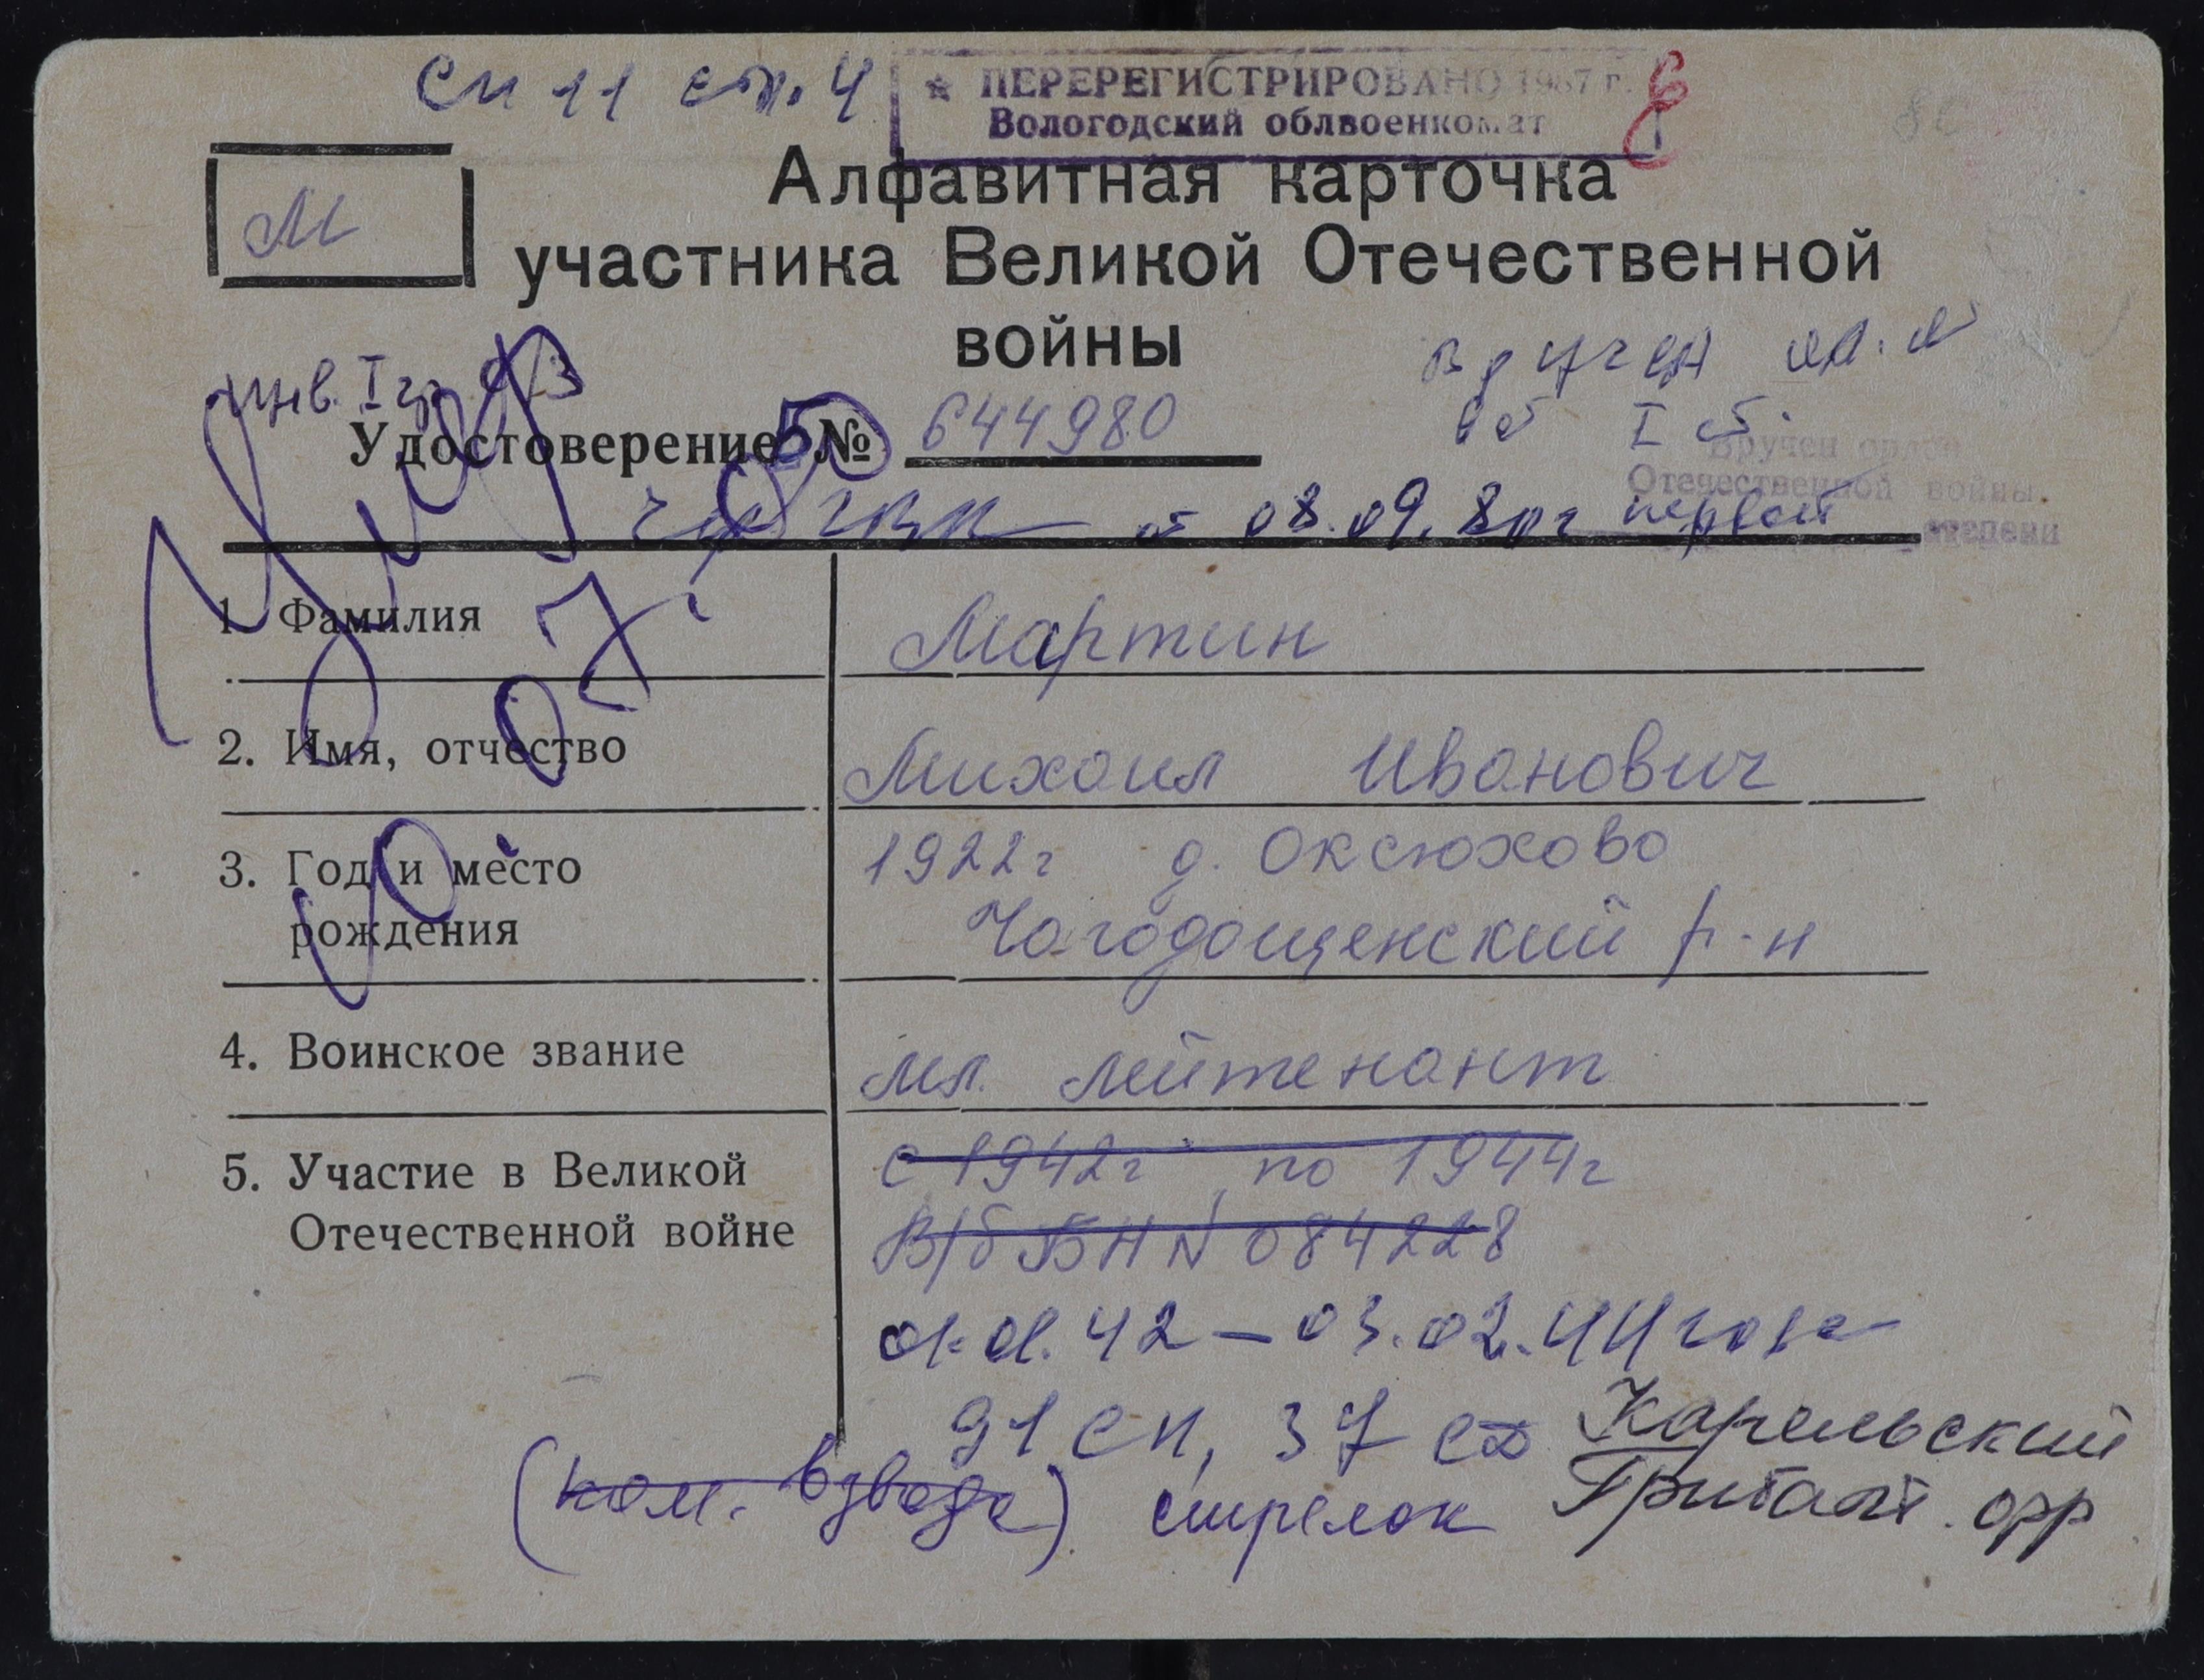 сп 11 ст. 4
★ ПЕРЕРЕГИСТРИРОВАНО 1987 г.
Вологодский облвоенкомат
М
Алфавитная карточка
участника Великой Отечественной
войны
инв. I гр
Вручен
I ст.
Удостоверение № 644980
Вручен орден
Отечественной войны
первой степени
от 08.09.80г
Умер
07.
1. Фамилия Мартин
2. Имя, отчество Михаил Иванович
3. Год и место 1922г д. Оксюхово
рождения Чагодощенский р-н
4. Воинское звание мл. лейтенант
5. Участие в Великой с 1942г по 1944г
Отечественной войне В/б БН № 084228
01.01.42 – 03.02.44 года
91 СП, 37 сд Карельский
(ком. взвода) стрелок Прибалт. фр